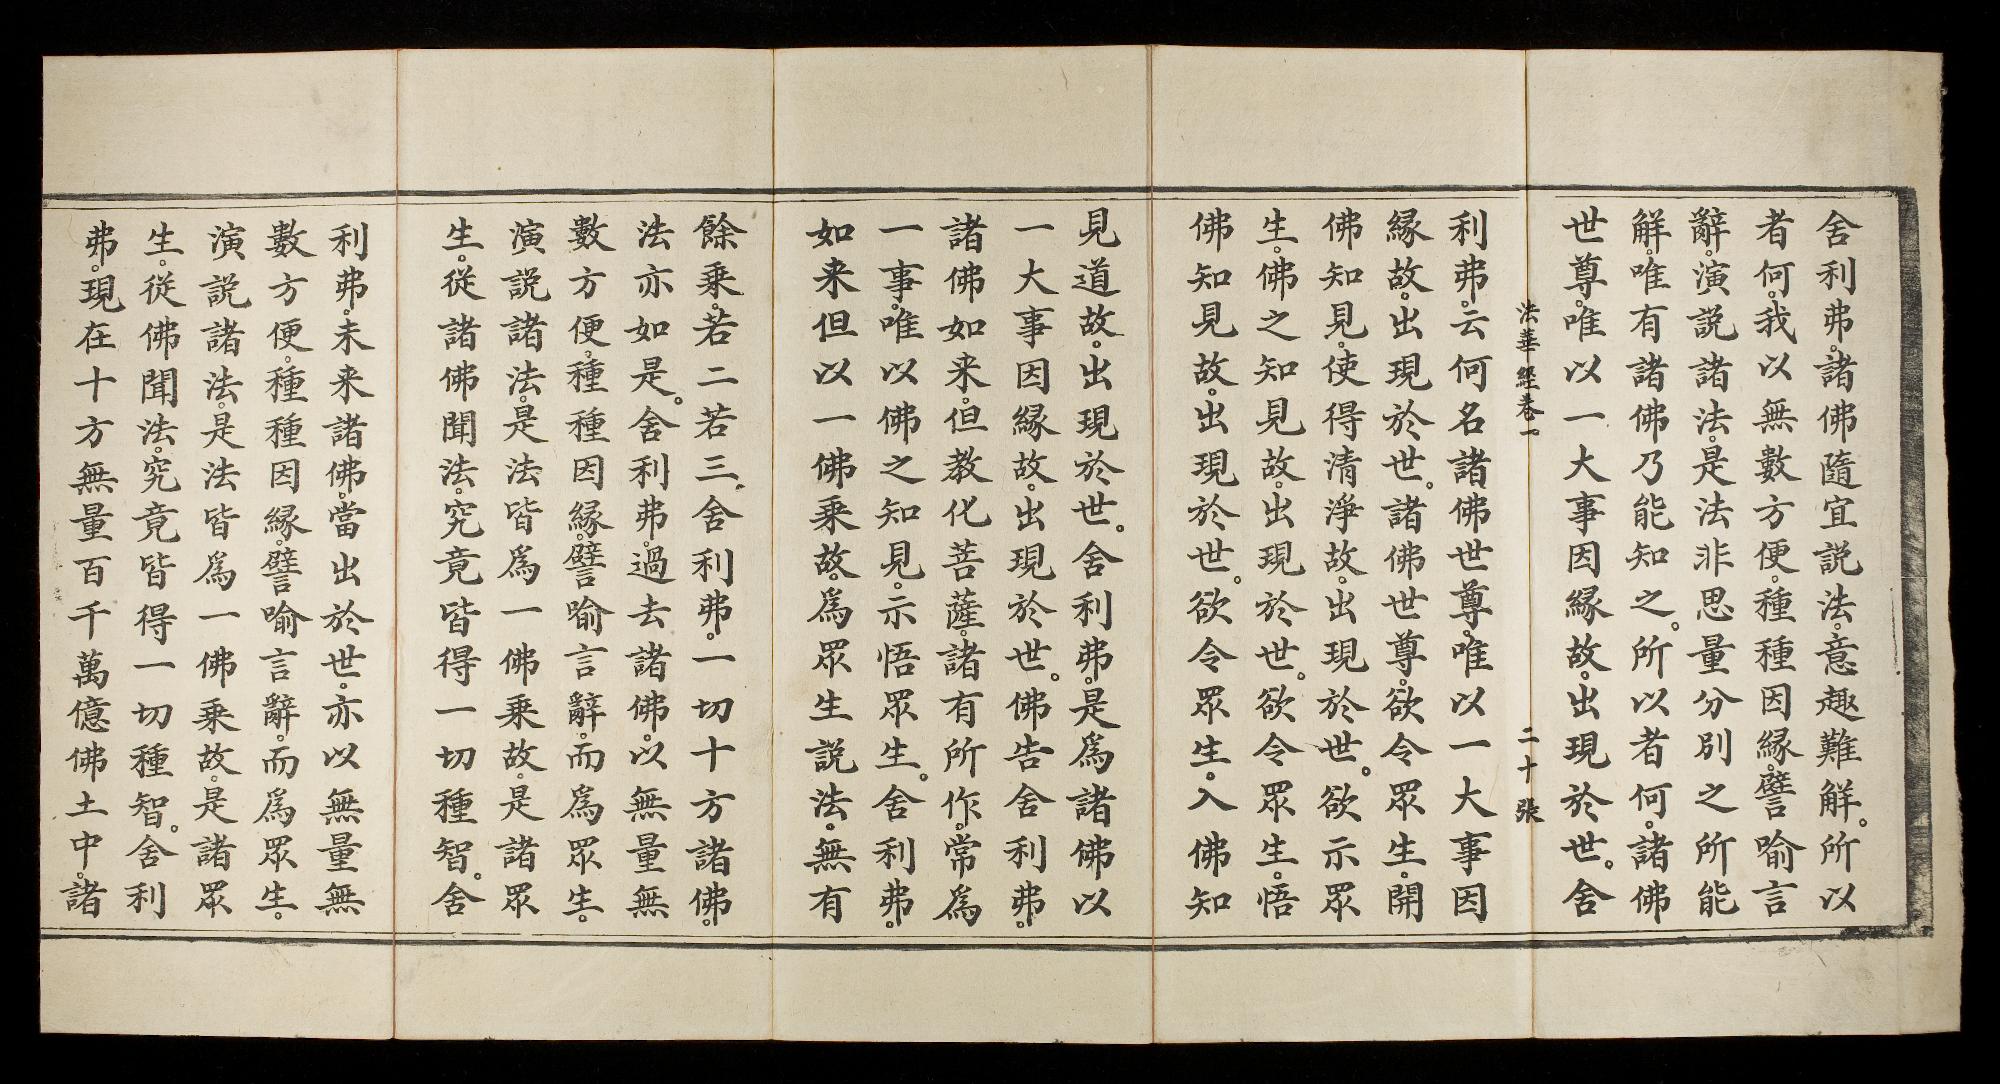 舍利弗。諸佛隨宜説法。意趣難解。所以
者何。我以無數方便。種種因縁。譬喻言
辭。演説諸法。是法非思量分別之所能
解。唯有諸佛乃能知之。所以者何。諸佛
世尊。唯以一大事因縁故。出現於世。舍
法華經卷一 二十張
利弗。云何名諸佛世尊。唯以一大事因
縁故。出現於世。諸佛世尊。欲令眾生。開
佛知見。使得清淨故。出現於世。欲示眾
生。佛之知見故。出現於世。欲令眾生。悟
佛知見故。出現於世。欲令眾生。入佛知
見道故。出現於世。舍利弗。是爲諸佛以
一大事因縁故。出現於世。佛告舍利弗。
諸佛如来。但教化菩薩。諸有所作。常爲
一事。唯以佛之知見。示悟眾生。舍利弗。
如来但以一佛乗故。爲眾生説法。無有
餘乗。若二若三。舍利弗。一切十方諸佛。
法亦如是。舍利弗。過去諸佛。以無量無
數方便。種種因縁。譬喻言辭。而爲眾生。
演説諸法。是法皆爲一佛乗故。是諸眾
生。從諸佛聞法。究竟皆得一切種智。舍
利弗。未来諸佛。當出於世。亦以無量無
數方便。種種因縁。譬喻言辭。而爲眾生。
演説諸法。是法皆爲一佛乗故。是諸眾
生。從佛聞法。究竟皆得一切種智。舍利
弗。現在十方無量百千萬億佛土中。諸